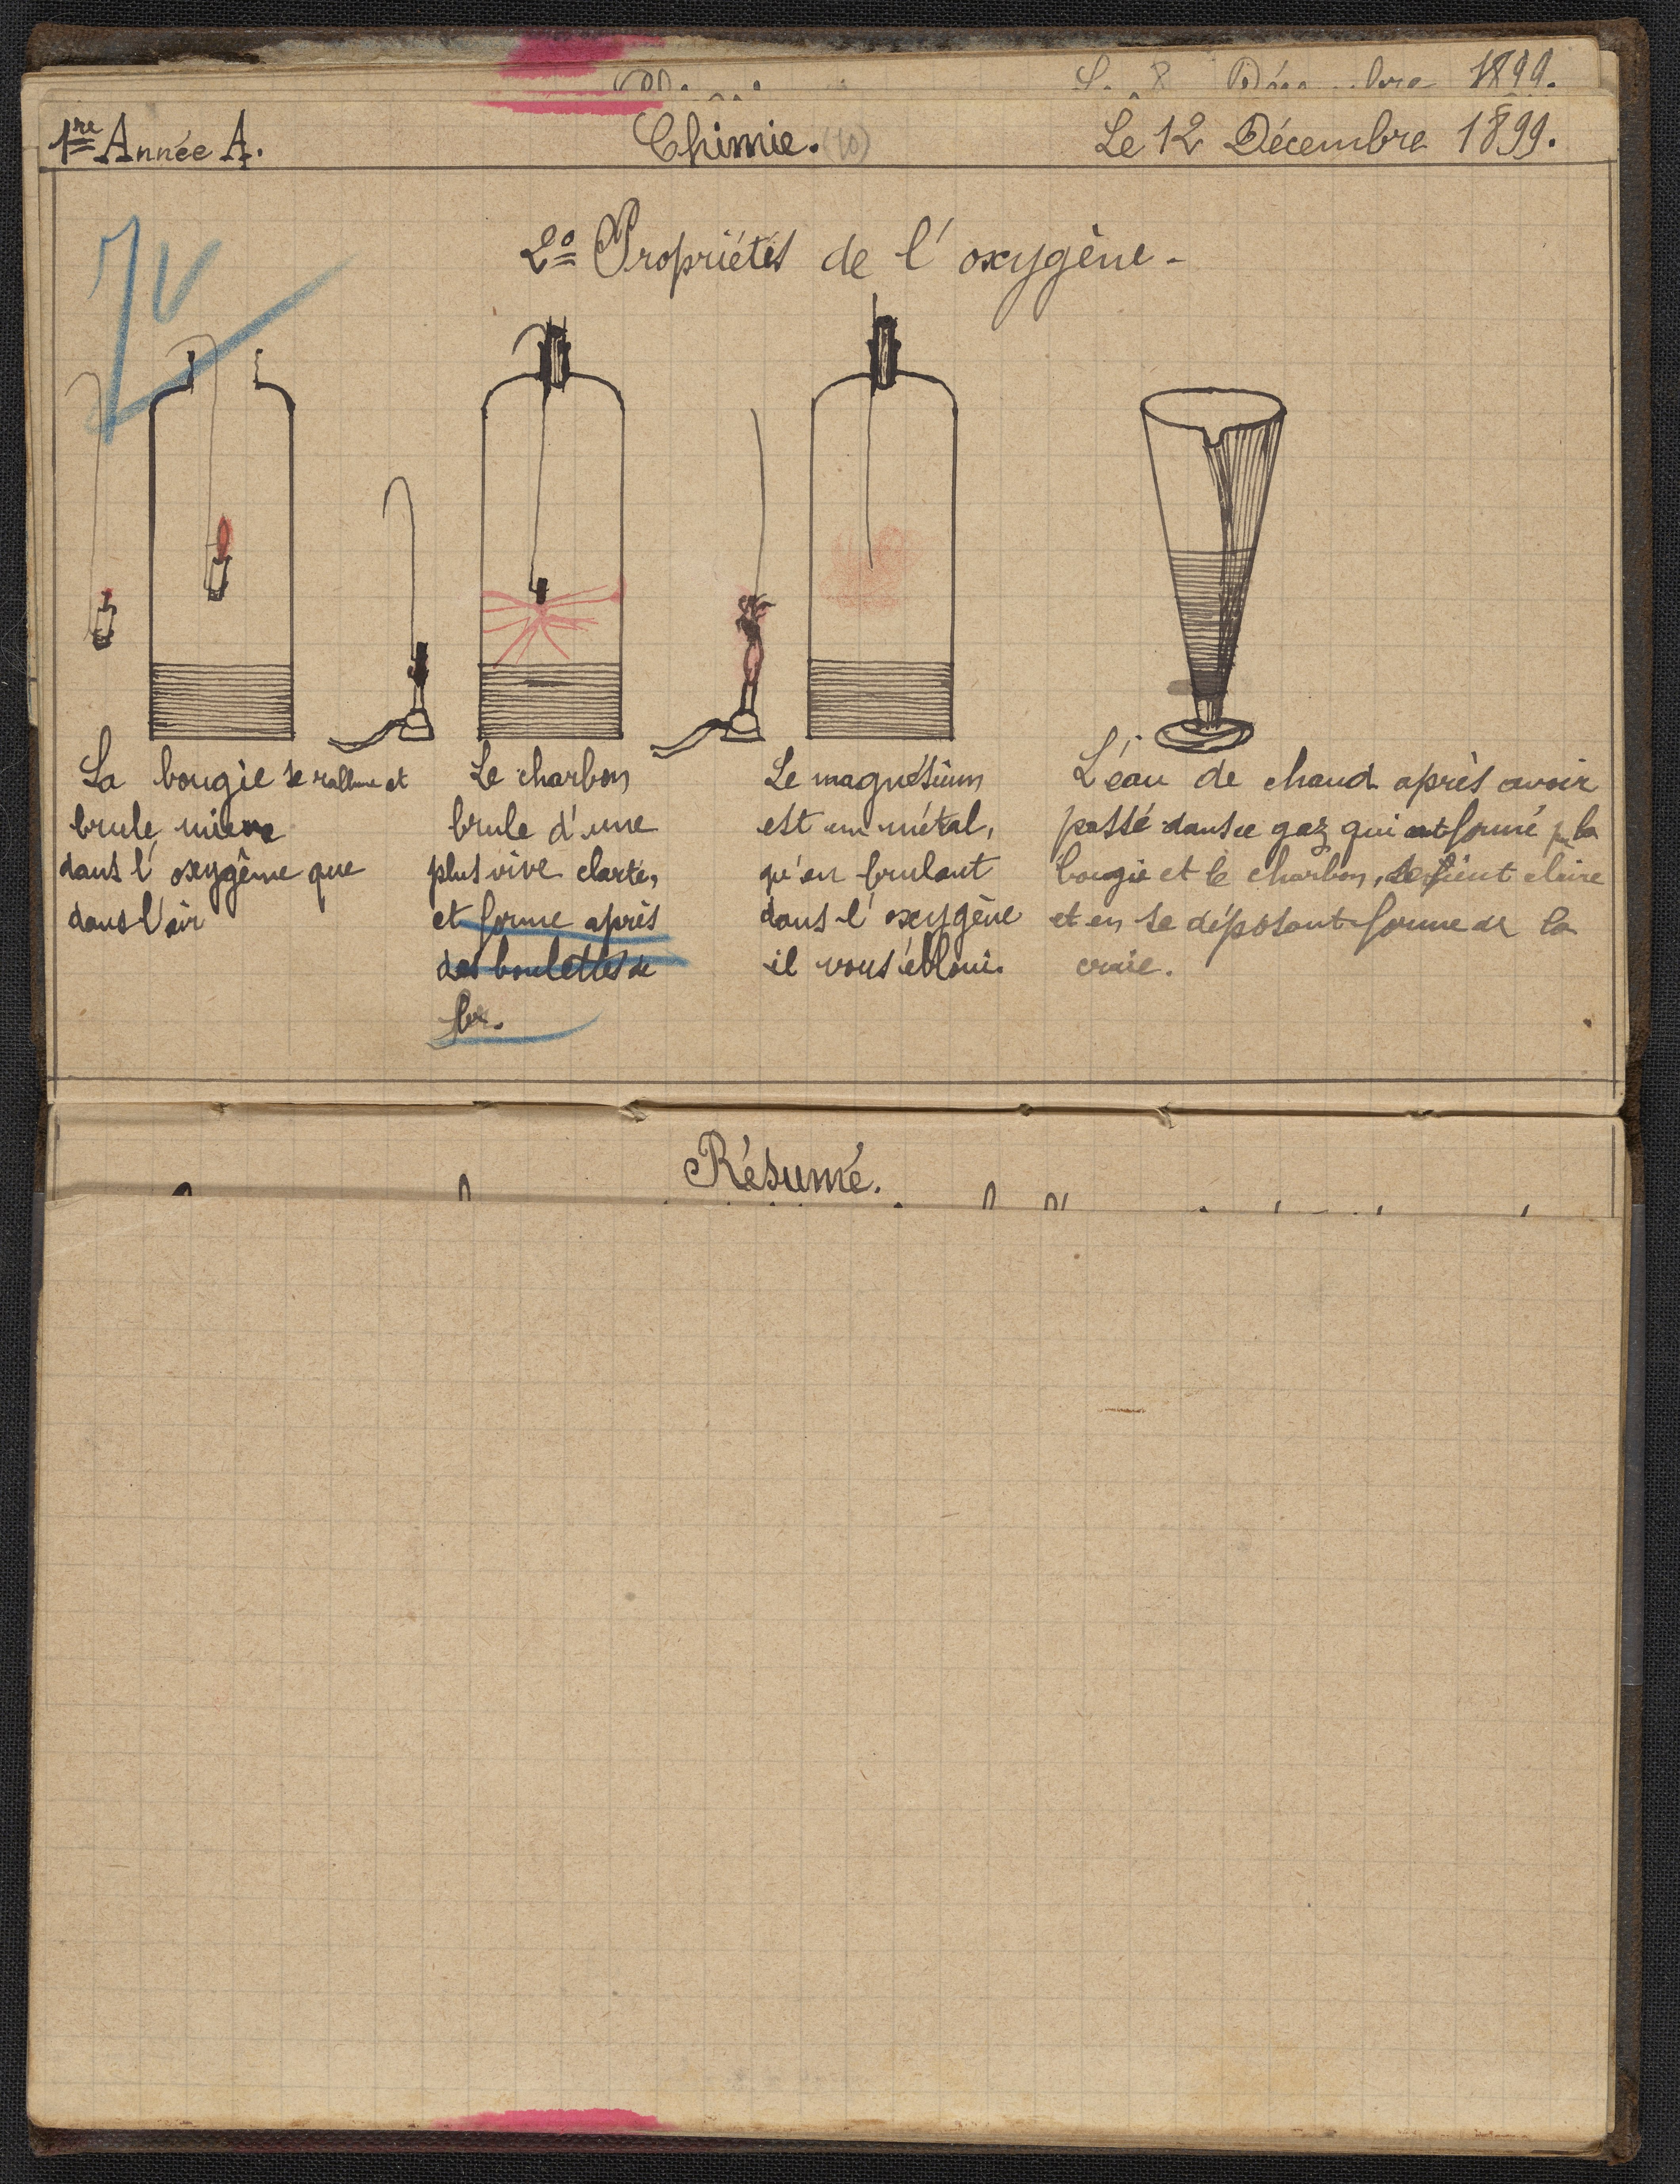 1re Année A. Chimie. (10) Le 12 Décembre 1899.
2o Propriétés de l'oxygène -
La bougie se rallume et
brule mieux
dans l'oxygène que
dans l'air
Le charbon
brule d'une
plus vive clarté,
et forme après
des boulettes de
fer.
Le magnésium
est un métal,
qu'en brulant
dans l'oxygène
il vous éblouit.
L'eau de chaud après avoir
passé dans ce gaz qui est formé p la
bougie et le charbon, devient claire
et en se déposant forme de la
craie.
Résumé.
1899.